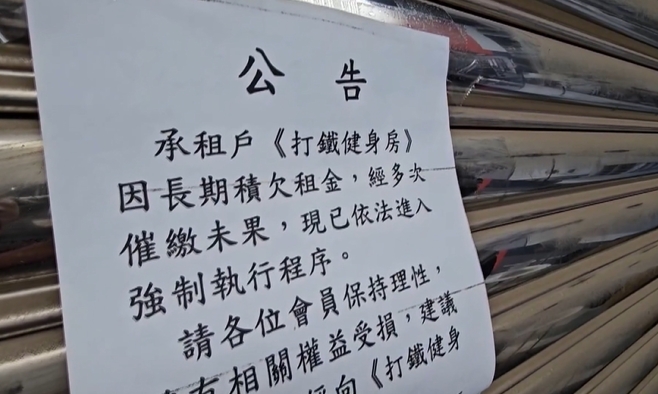 公告
承租戶《打鐵健身房》
因長期積欠租金，經多次
催繳未果，現已依法進入
強制執行程序。
請各位會員保持理性，
有相關權益受損，建議
向《打鐵健身